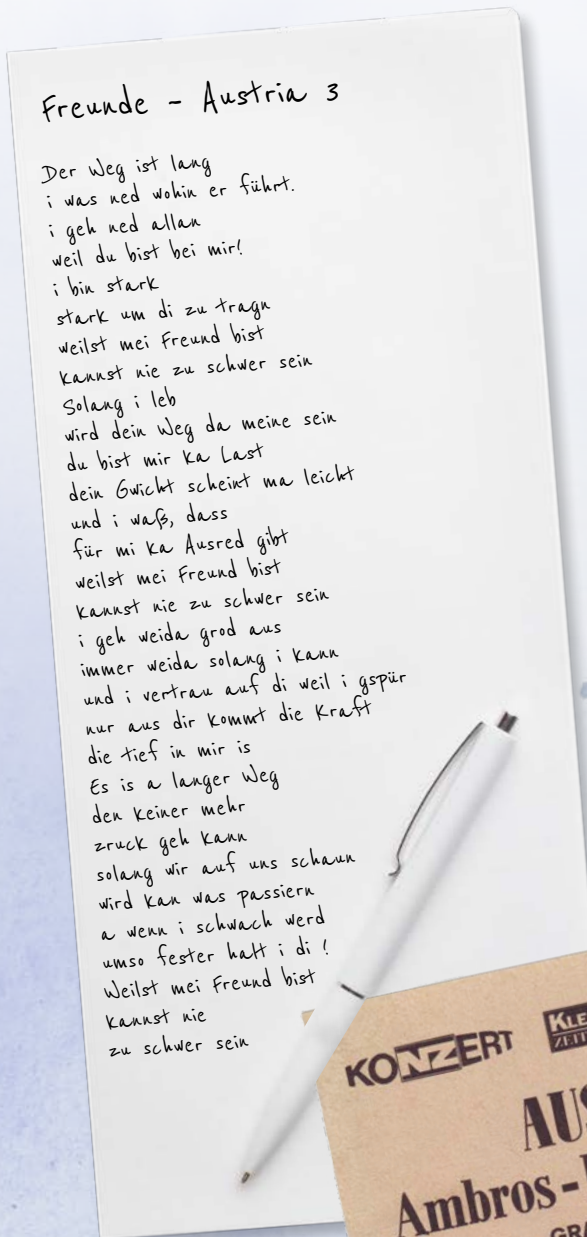 Freunde - Austria 3
Der Weg ist lang
i was ned wohin er führt.
i geh ned allan
weil du bist bei mir!
i bin stark
stark um di zu tragn
weilst mei Freund bist
kannst nie zu schwer sein
Solang i leb
wird dein Weg da meine sein
du bist mir ka Last
dein Gwicht scheint ma leicht
und i waß, dass
für mi ka Ausred gibt
weilst mei Freund bist
kannst nie zu schwer sein
i geh weida grod aus
immer weida solang i kann
und i vertrau auf di weil i gspür
nur aus dir kommt die Kraft
die tief in mir is
Es is a langer Weg
den keiner mehr
zruck geh kann
solang wir auf uns schaun
wird kan was passiern
a wenn i schwach werd
umso fester halt i di !
Weilst mei Freund bist
kannst nie
zu schwer sein
KONZERT
Ambros-